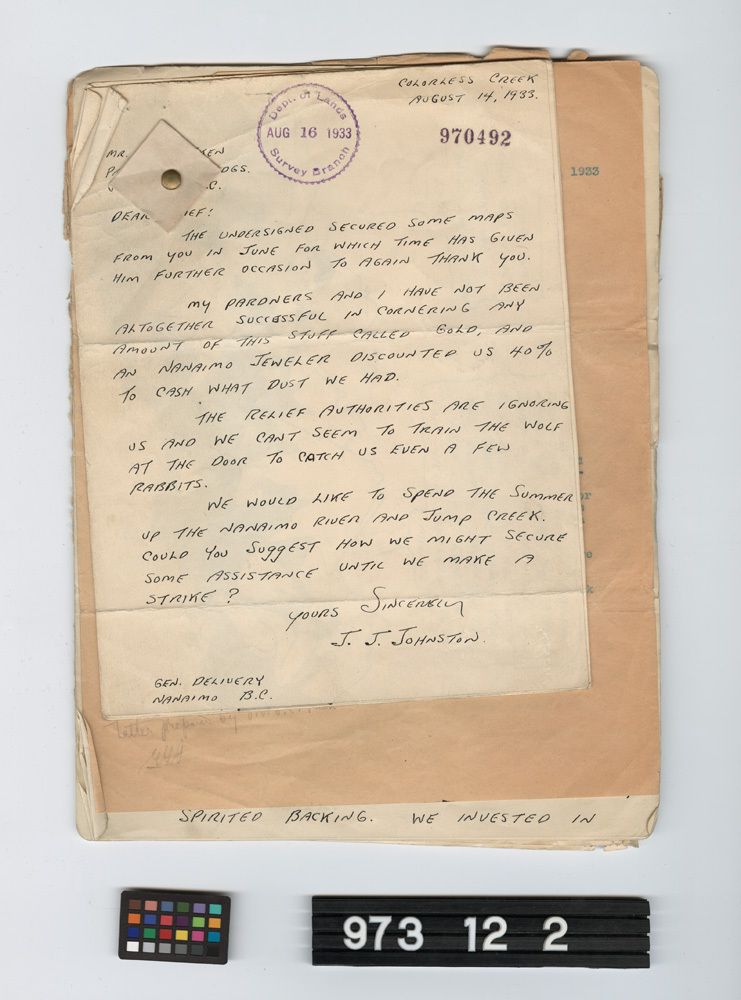 COLORLESS CREEK
AUGUST 14, 1933.
Dept. of Lands
AUG 16 1933
Survey Branch
970492
1933
MR. KEN
DGS.
C.
DEAR IEF!
THE UNDERSIGNED SECURED SOME MAPS
FROM YOU IN JUNE FOR WHICH TIME HAS GIVEN
HIM FURTHER OCCASION TO AGAIN THANK YOU.
MY PARDNERS AND I HAVE NOT BEEN
ALTOGETHER SUCCESSFUL IN CORNERING ANY
AMOUNT OF THIS STUFF CALLED GOLD, AND
AN NANAIMO JEWELER DISCOUNTED US 40%
TO CASH WHAT DUST WE HAD.
THE RELIEF AUTHORITIES ARE IGNORING
US AND WE CANT SEEM TO TRAIN THE WOLF
AT THE DOOR TO CATCH US EVEN A FEW
RABBITS.
WE WOULD LIKE TO SPEND THE SUMMER
UP THE NANAIMO RIVER AND JUMP CREEK.
COULD YOU SUGGEST HOW WE MIGHT SECURE
SOME ASSISTANCE UNTIL WE MAKE A
STRIKE?
YOURS SINCERELY
J. J. JOHNSTON.
GEN. DELIVERY
NANAIMO B.C.
letter prepared by
SPIRITED BACKING. WE INVESTED IN
973 12 2